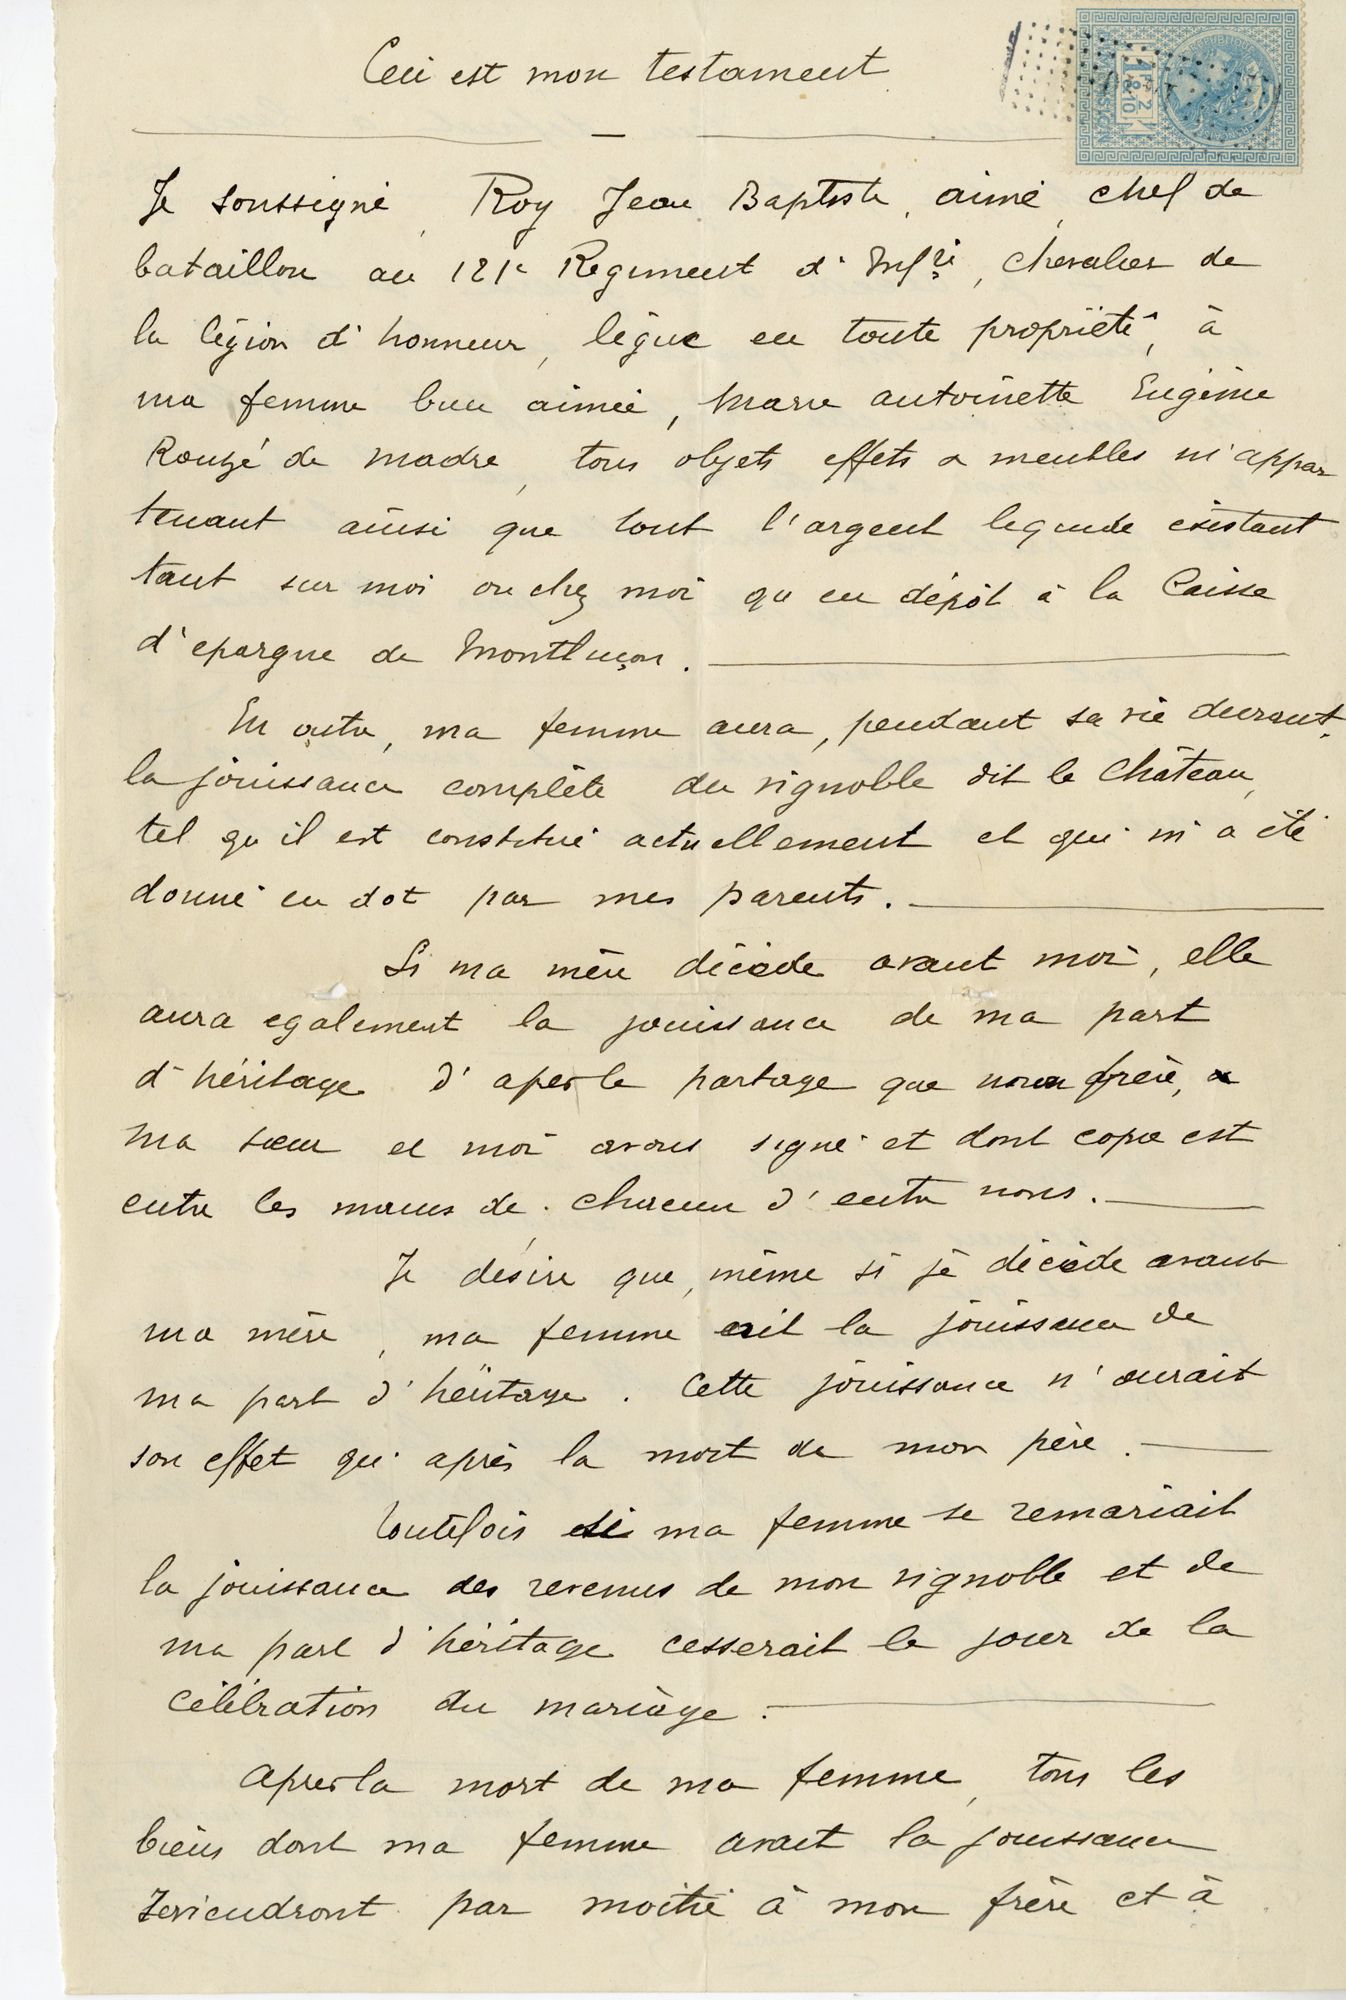 Ceci est mon testament
Je soussigné, Roy Jean Baptiste, aimé, chef de
bataillon au 121e Regiment d'Infrie, chevalier de
la légion d'honneur, légue en toute propriété, à
ma femme bien aimée, Marie antoinette Eugénie
Rouzé de Madre, tous objets effets & meubles m'appar
tenant ainsi que tout l'argent liquide existant
tant sur moi ou chez moi qu'en dépôt à la Caisse
d'epargne de Montluçon.
En outre, ma femme aura, pendant sa vie durant,
la jouissance complète du vignoble dit le Château,
tel qu'il est constitué actuellement et qui m'a été
donné en dot par mes parents.
Si ma mère décède avant moi, elle
aura egalement la jouissance de ma part
d'héritage d'après le partage que mon frère, &
ma sœur et moi avons signé et dont copie est
entre les mains de chacun d'entre nous.
Je désire que, même si je décède avant
ma mère, ma femme ait la jouissance de
ma part d'héritage. Cette jouissance n'aurait
son effet qu'après la mort de mon père.
Toutefois si ma femme se remariait
la jouissance des revenus de mon vignoble et de
ma part d'héritage cesserait le jour de la
célébration du mariage.
Après la mort de ma femme, tous les
biens dont ma femme avait la jouissance
reviendront par moitié à mon frère et à